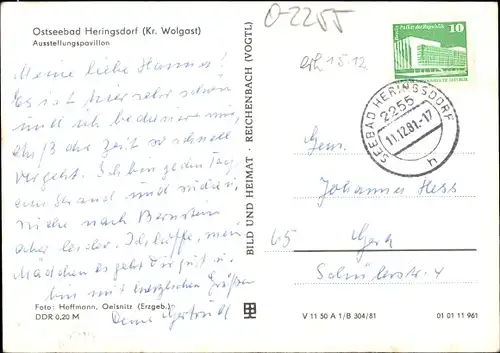 Ostseebad Heringsdorf (Kr. Wolgast)
Ausstellungspavillon
Meine liebe Hanna!
Es ist hier sehr schön
und ich bedaure nur,
daß die Zeit so schnell
vergeht. Ich bin jeden Tag
am Strand und
suche nach Bernstein
aber leider. Ich hoffe, mein
Mädchen es geht Dir gut u.
bin mit herzlichen Grüßen
Deine Gertrud
Foto: Hoffmann, Oelsnitz (Erzgeb.)
DDR 0,20 M
BILD UND HEIMAT · REICHENBACH (VOGTL)
O-2255
erh 15.12
10
SEEBAD HERINGSDORF
2255
11.12.81-17
h
Johannes Hess
65
Gera
Schülerstr. 4
V 11 50 A 1/B 304/81
01 01 11 961